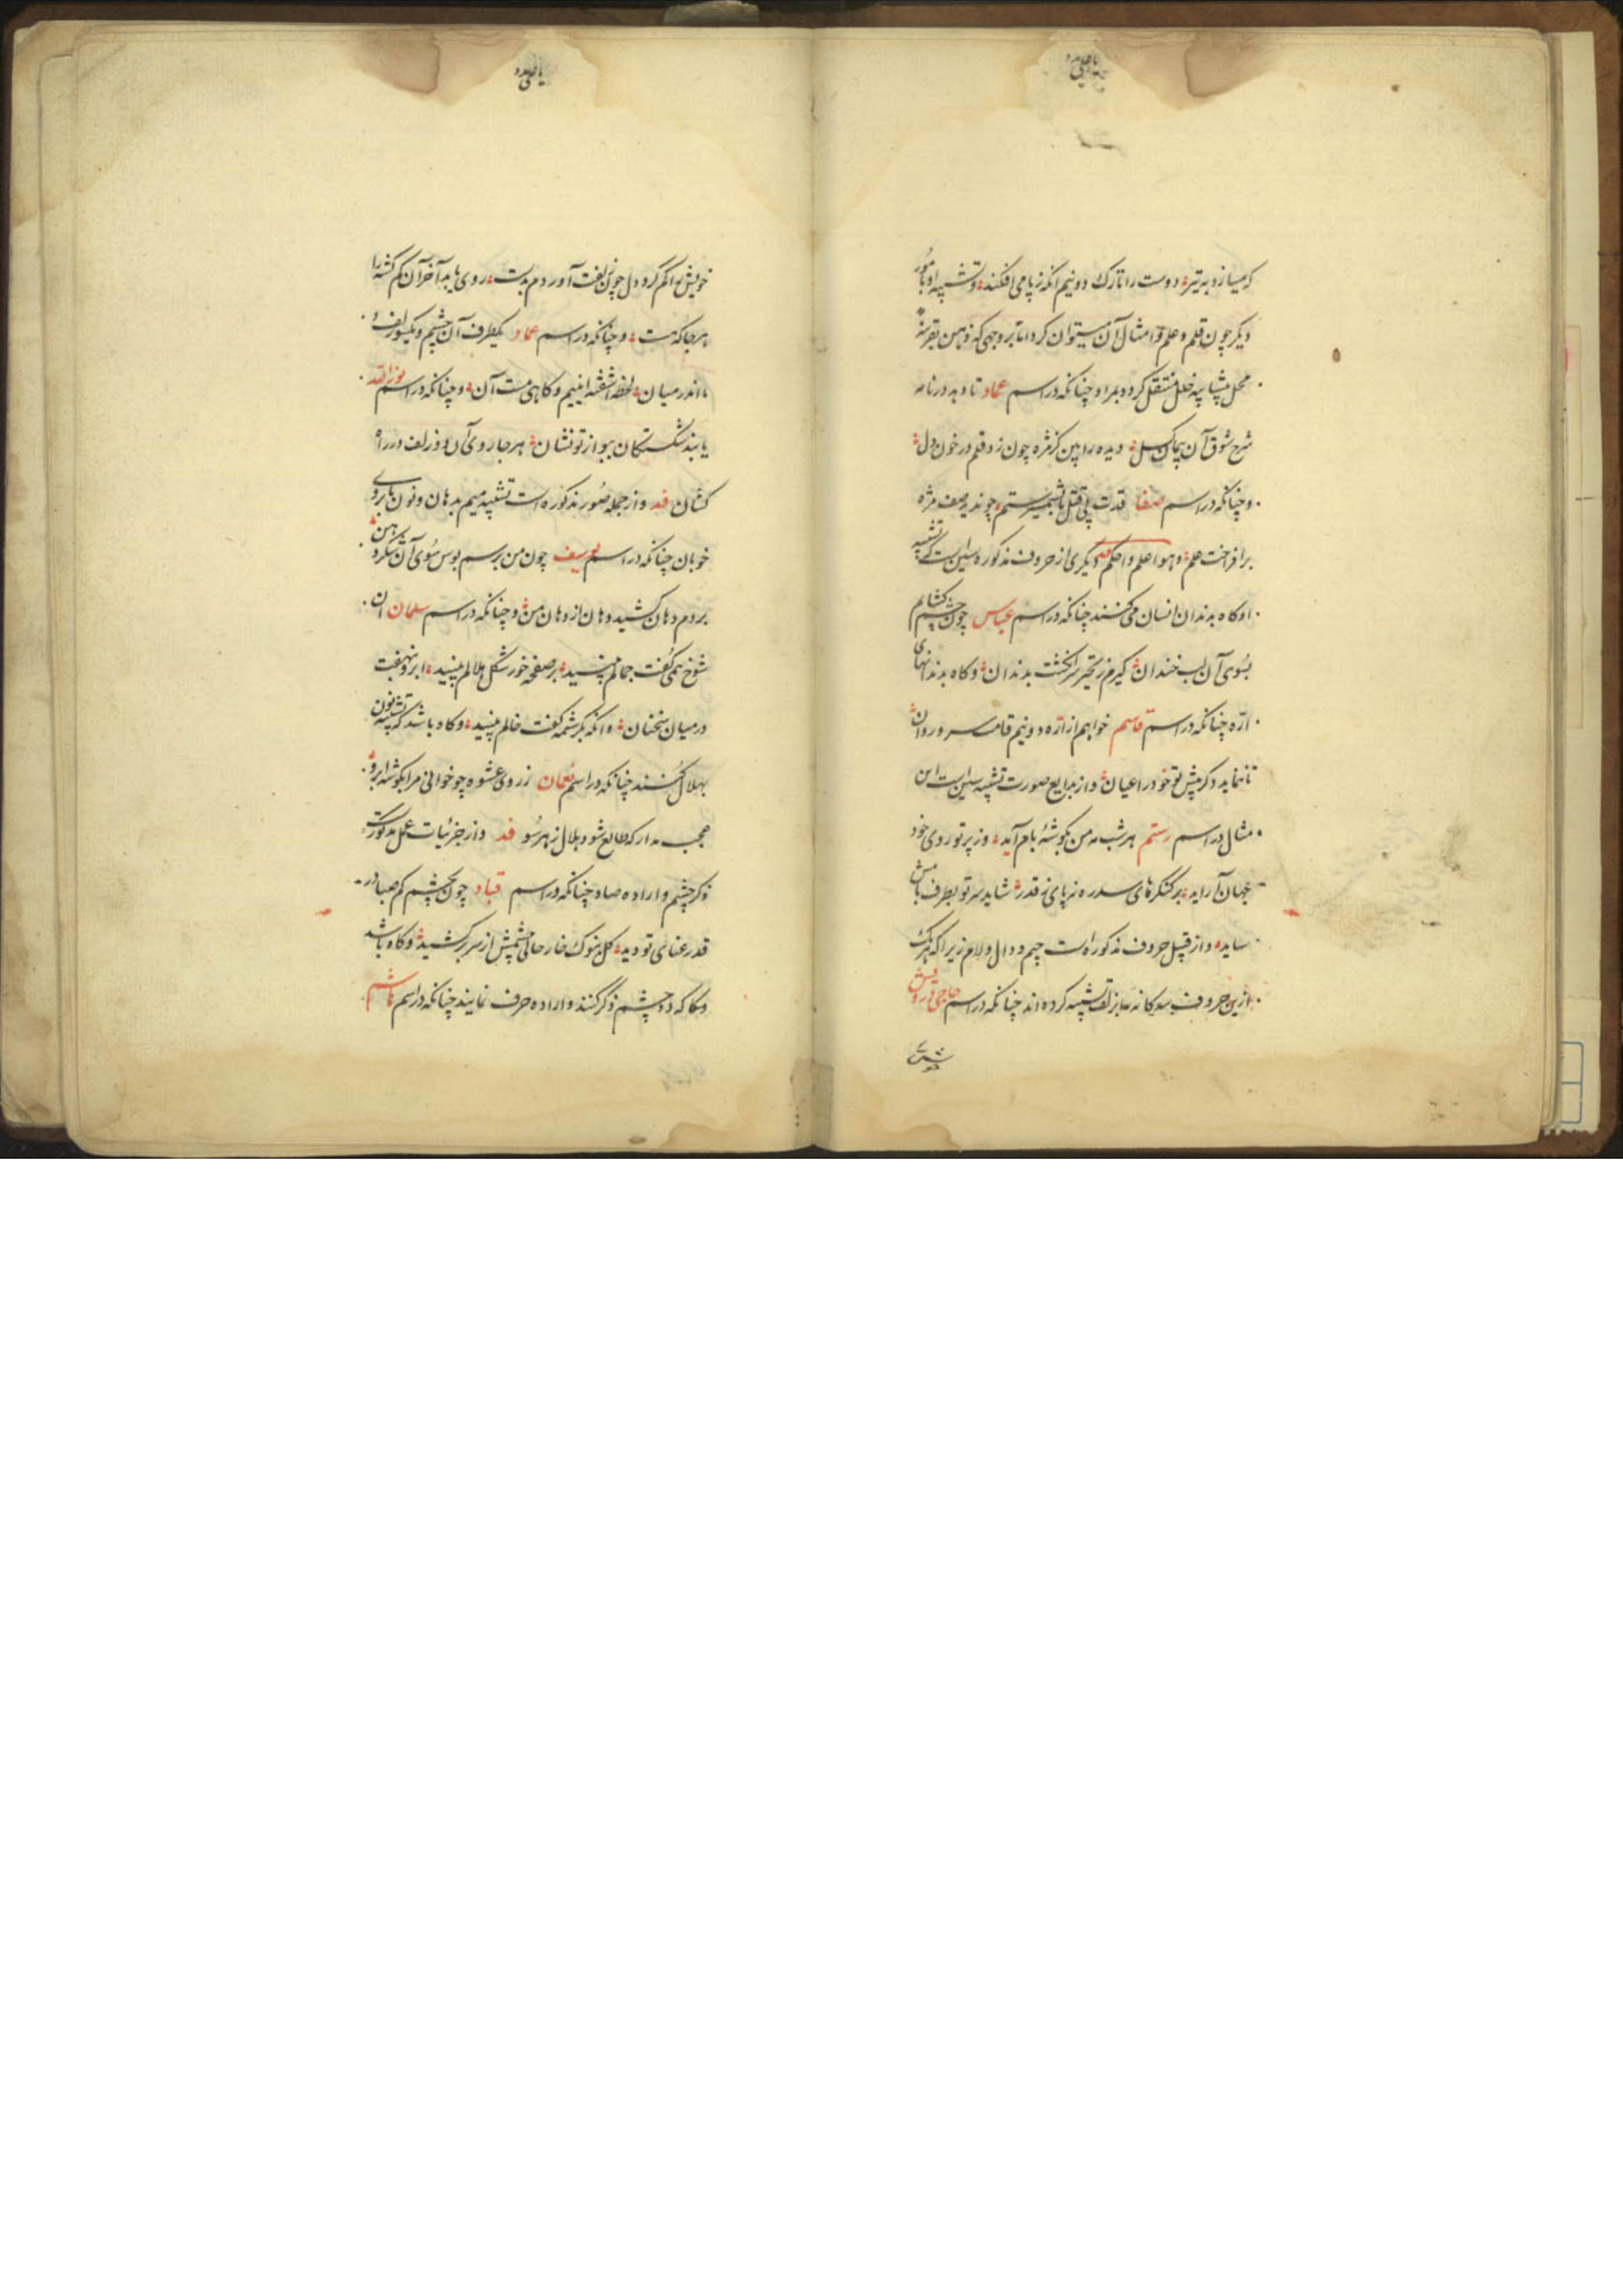 که میسازد به تیر دوست را تارک دو نیم آنکه ز پا می افکند و تشبیه او بامور
دیگر چون قلم و علم و امثال آن میتوان کرد اما بر وجهی که ذهن بقرینه
محل بی شایبه خلل منتقل گردد بمراد چنانکه در اسم عماد تا دهد در نامه
شرح شوق آن پیمان گسل دیده را بین کز مژه چون زد قلم در خون دل
و چنانکه در اسم صفا قدت پی قتل ما بشمشیر ستم چو ندید صف مژه
برافراخت علم و هو اعلم و احکم قلم دیگری از حروف مذکوره سین است که تشبیه
او گاه بدندان انسان می کنند چنانکه در اسم عباس چون چشم گشایم
بسوی آن لب خندان گیرم ز تحیر سر انگشت بدندان و گاه بدندانهای
اره چنانکه در اسم قاسم خواهم از اره دو نیم قامت سرو روان
تا نماید دگر پیش تو خود را عیان و از بدایع صورت تشبیه سین است این
مثال در اسم رستم هر شب مه من بگوشۀ بام آید وز پرتو روی خود
جهان آراید بر کنگرهای سدره نه پای ز قدر شاید سر تو بطرف بامش
ساید و از قبیل حروف مذکوره است جیم و دال و لام زیرا که هر یک
از این حروف سه گانه را بزلف تشبیه کرده اند چنانکه در اسم حاجی درویش
خویش را گم کرد دل چون زلفت آورد م بدست روی بنما به آخر آن گم گشته را
هر جا که هست و چنانکه در اسم عماد یکطرف آن چشم و یکسو زلف و
ما اندر میان لحظه آشفته اینیم و گاهی مست آن و چنانکه در اسم نورالله
یابند شکستگان ببو از تو نشان هر جا روی آن دو زلف در راه
کشان قد و از جمله صور مذکوره است تشبیه میم بدهان و نون بابروی
خوبان چنانکه در اسم یوسف چون من برسم بوس سوی آن شکر دهن
بردم دهان کشید دهان از دهان من و چنانکه در اسم سلمان آن
شوخ همی گفت جمالم ببینید بر صفحه خور شکل هلالم ببینید ابرو بنهفت
در میان سخنان وانگه بکرشمه گفت خالم ببینید و گاه باشد که تشبیه نون
بهلال کنند چنانکه در اسم نعمان ز روی عشوه چو خوانی مرا بگوشه ابرو
عجب مدار که طالع شود هلال ز هر سو قد و از جزئیات عمل مذکورست
ذکر چشم و اراده صاد چنانکه در اسم قباد چون بچشم کم صبا در
قد رعنای تو دید گل بنوک خار حالی چشمش از سر بر کشید و گاه باشد
و گاه که دو چشم ذکر کنند و اراده حرف نمایند چنانکه در اسم هاشم